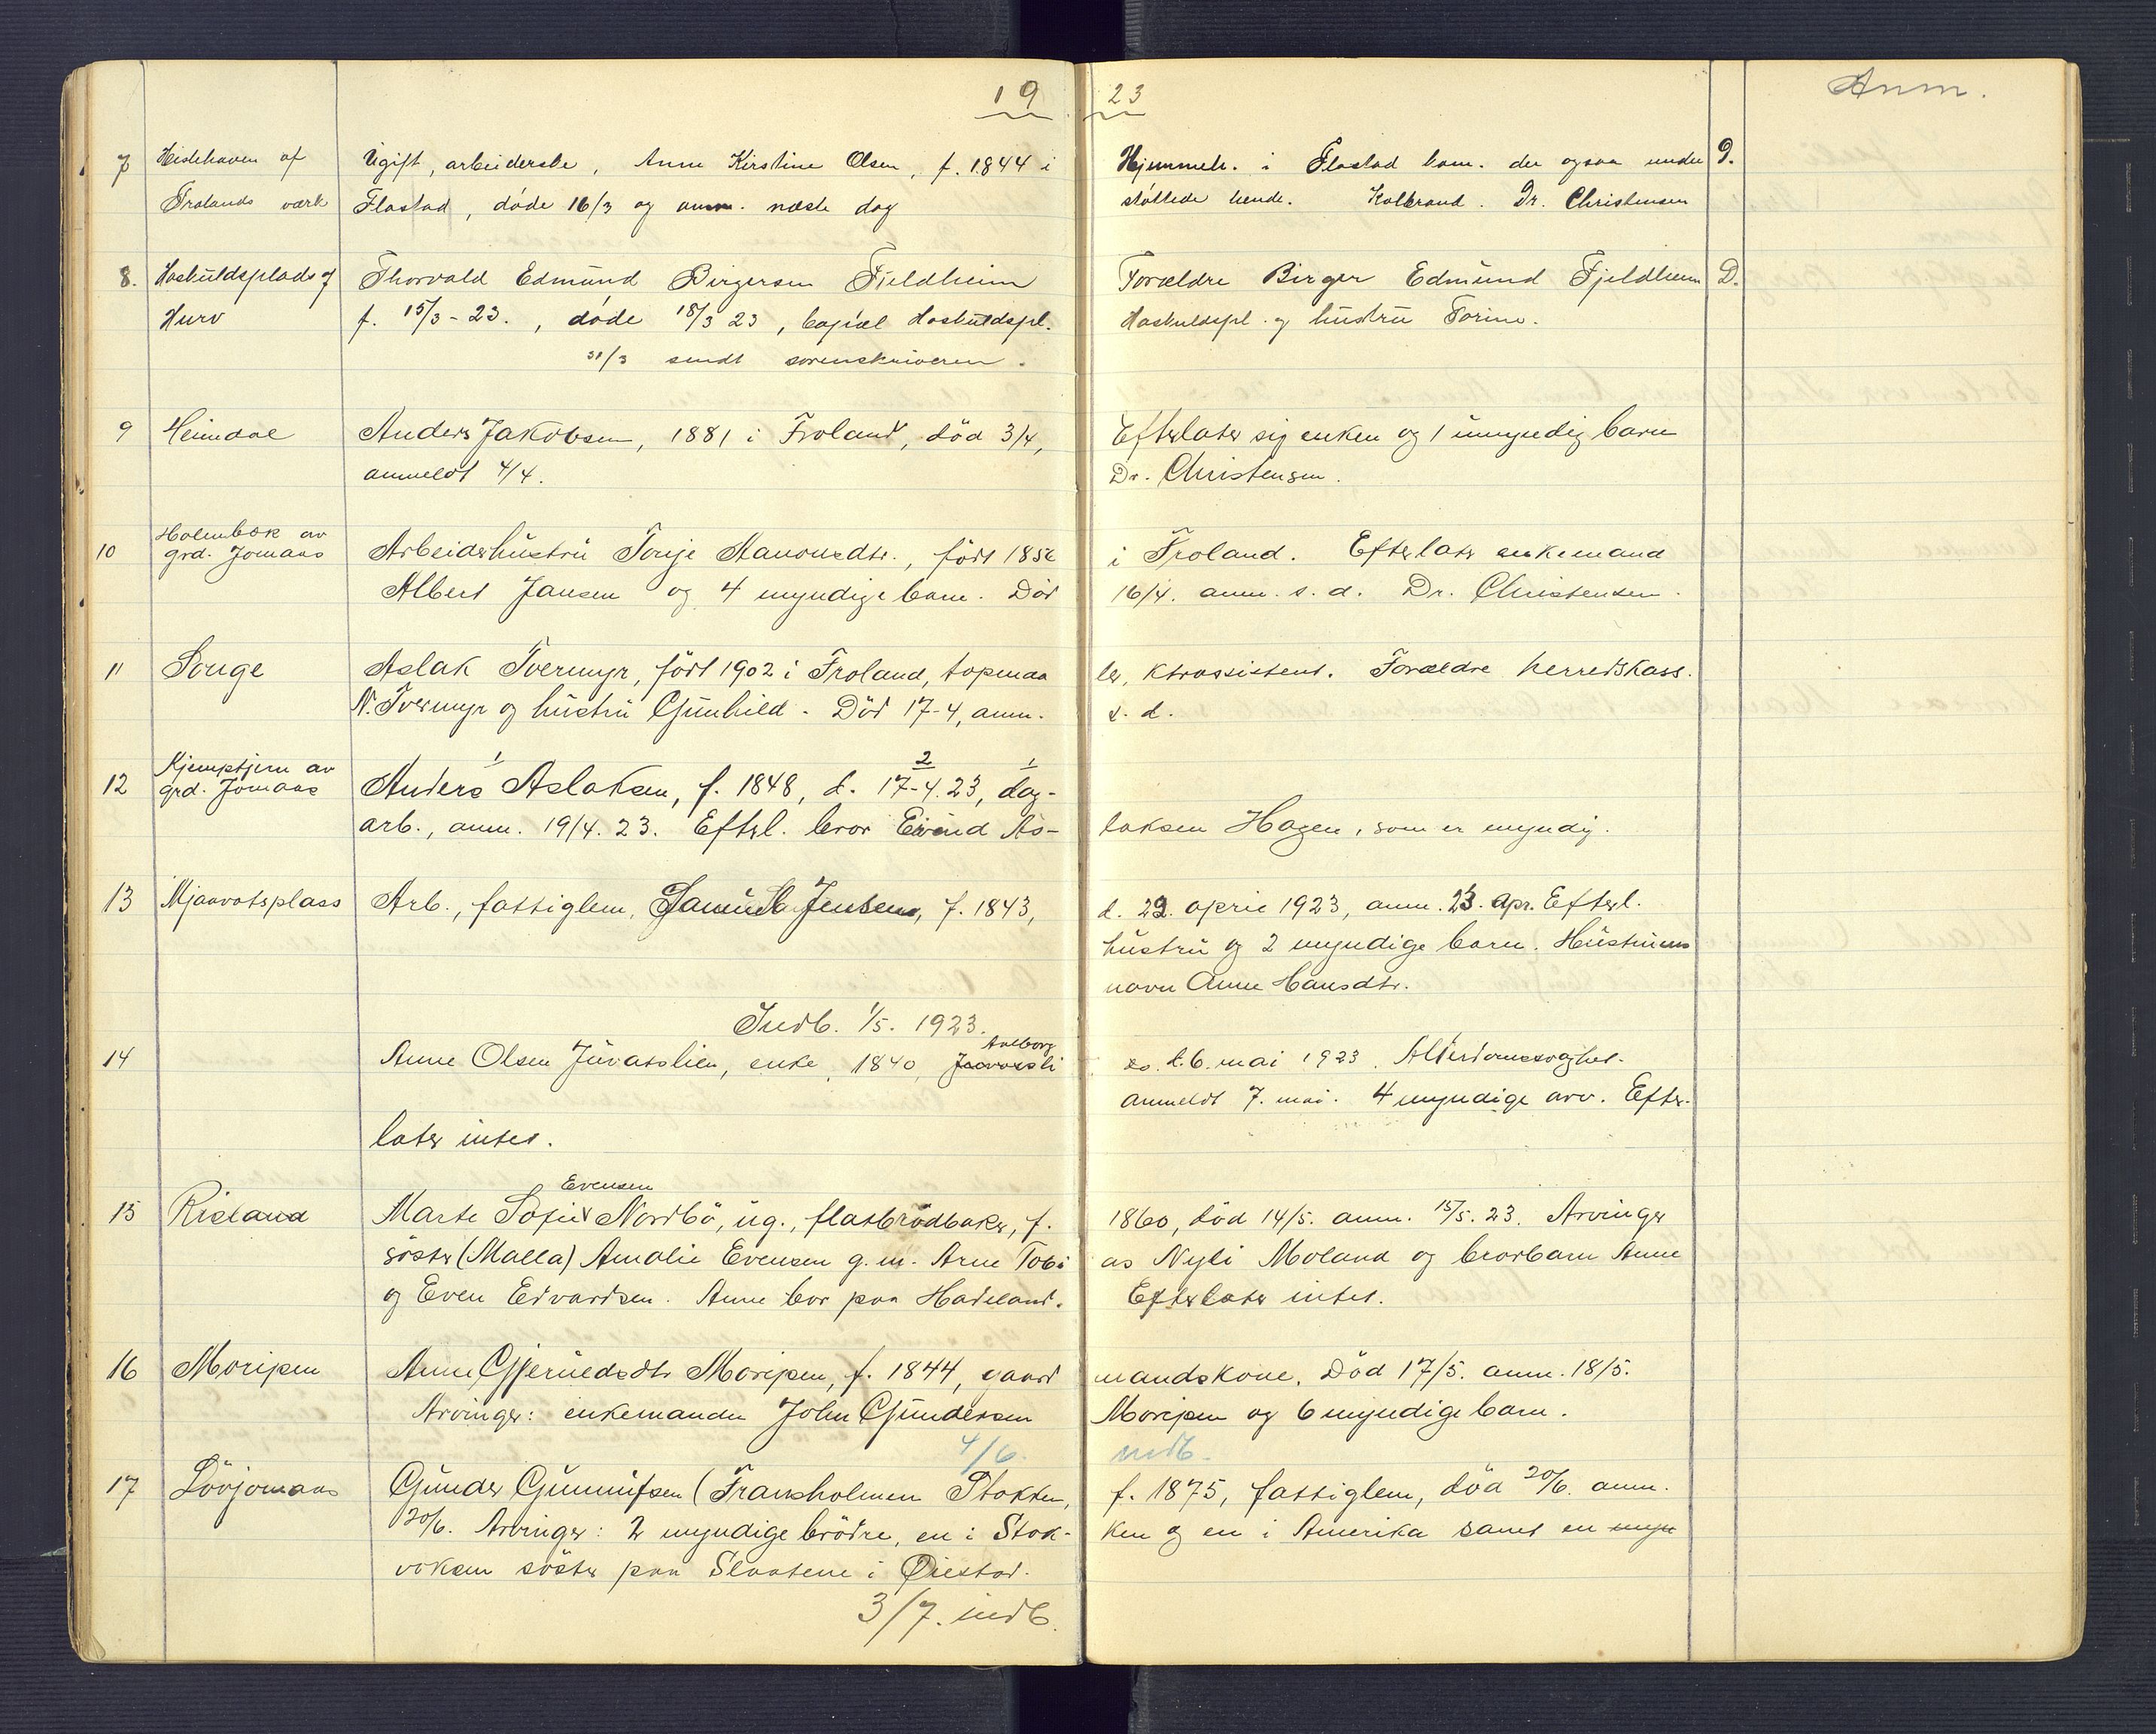 19 23
Anm.
7 Heidehaven af Ugift, arbeiderske, Anne Kirstine Olsen, f. 1844 i Hjemmeh. i Flostad kom. der ogsaa under D.
Frolands værk Flostad, døde 16/3 og anm. næste dag støttede hende. Kolbrand. Dr. Christensen
8. Hoskuldsplads af Thorvald Edmund Birgersen Fjeldheim Forældre Birger Edmund Fjeldheim D.
Hurv f. 15/3-23., døde 18/3 23, Hoskuldspl. Hoskuldspl. og hustru Torine.
31/3 sendt sorenskriveren.
9 Heimdal Anders Jakobsen, 1881 i Froland, död 3/4, Efterlater sig enken og 1 umyndig barn
anmeldt 4/4. Dr. Christensen.
Holmbæk av
10 grd. Jomaas Arbeiderhustru Tonje Aanonsdtr., födt 1856 i Froland. Efterlater enkemand
Albert Jansen og 4 myndige barn. Död 16/4. anm. s. d. Dr. Christensen.
11 Songe Aslak Tvermyr, födt 1902 i Froland, topmaa ler, ktrassistent. Forældre herredskass.
N. Tvermyr og hustru Gunhild. Död 17-4, anm. s. d.
Kjempetjern av 1 2 1
12 grd. Jomaas Anders Aslaksen, f. 1848, d. 17-4.23, dag-
arb., anm. 19/4. 23. Efterl. bror Eivind As- laksen Hagen, som er myndig.
13 Mjaavatsplass Arb., fattiglem, Samuel Jensen, f. 1843, d. 22. april 1923, anm. 23. apr. Efterl.
hustru og 2 myndige barn. Hustruens
navn Anne Hansdtr.
Indb. 1/5. 1923.
Aalborg
14 Anne Olsen Juvasslien, enke, 1840, d. 6. mai 1923. Alderdomssvaghet.
anmeldt 7. mai. 4 myndige arv. Efter-
later intet.
Evensen
15 Risland Marte Sofie Nordbö, ug., flatbrödbaker, f. 1860, död 14/5. anm. 15/5. 23. Arvinger
söster (Malla) Amalie Evensen g. m. Arne Tobi as Nyli Moland og brorbarn Anne
og Even Edvardsen. Anne bor paa Hadeland. Efterlater intet.
16 Moripen Anne Gjeruldsdtr Moripen, f. 1844, gaard mandskone. Död 17/5. anm. 18/5.
Arvinger: enkemanden John Gundersen Moripen og 6 myndige barn.
4/6. indb.
17 Lövjomaas Gunder Gunnufsen (Fransholmen Stokken, f. 1875, fattiglem, död 20/6. anm.
20/6. Arvinger: 2 myndige brödre, en i Stok- ken og en i Amerika samt en myn
voksen söster paa Slaatene i Øiestad.
3/7. indb.